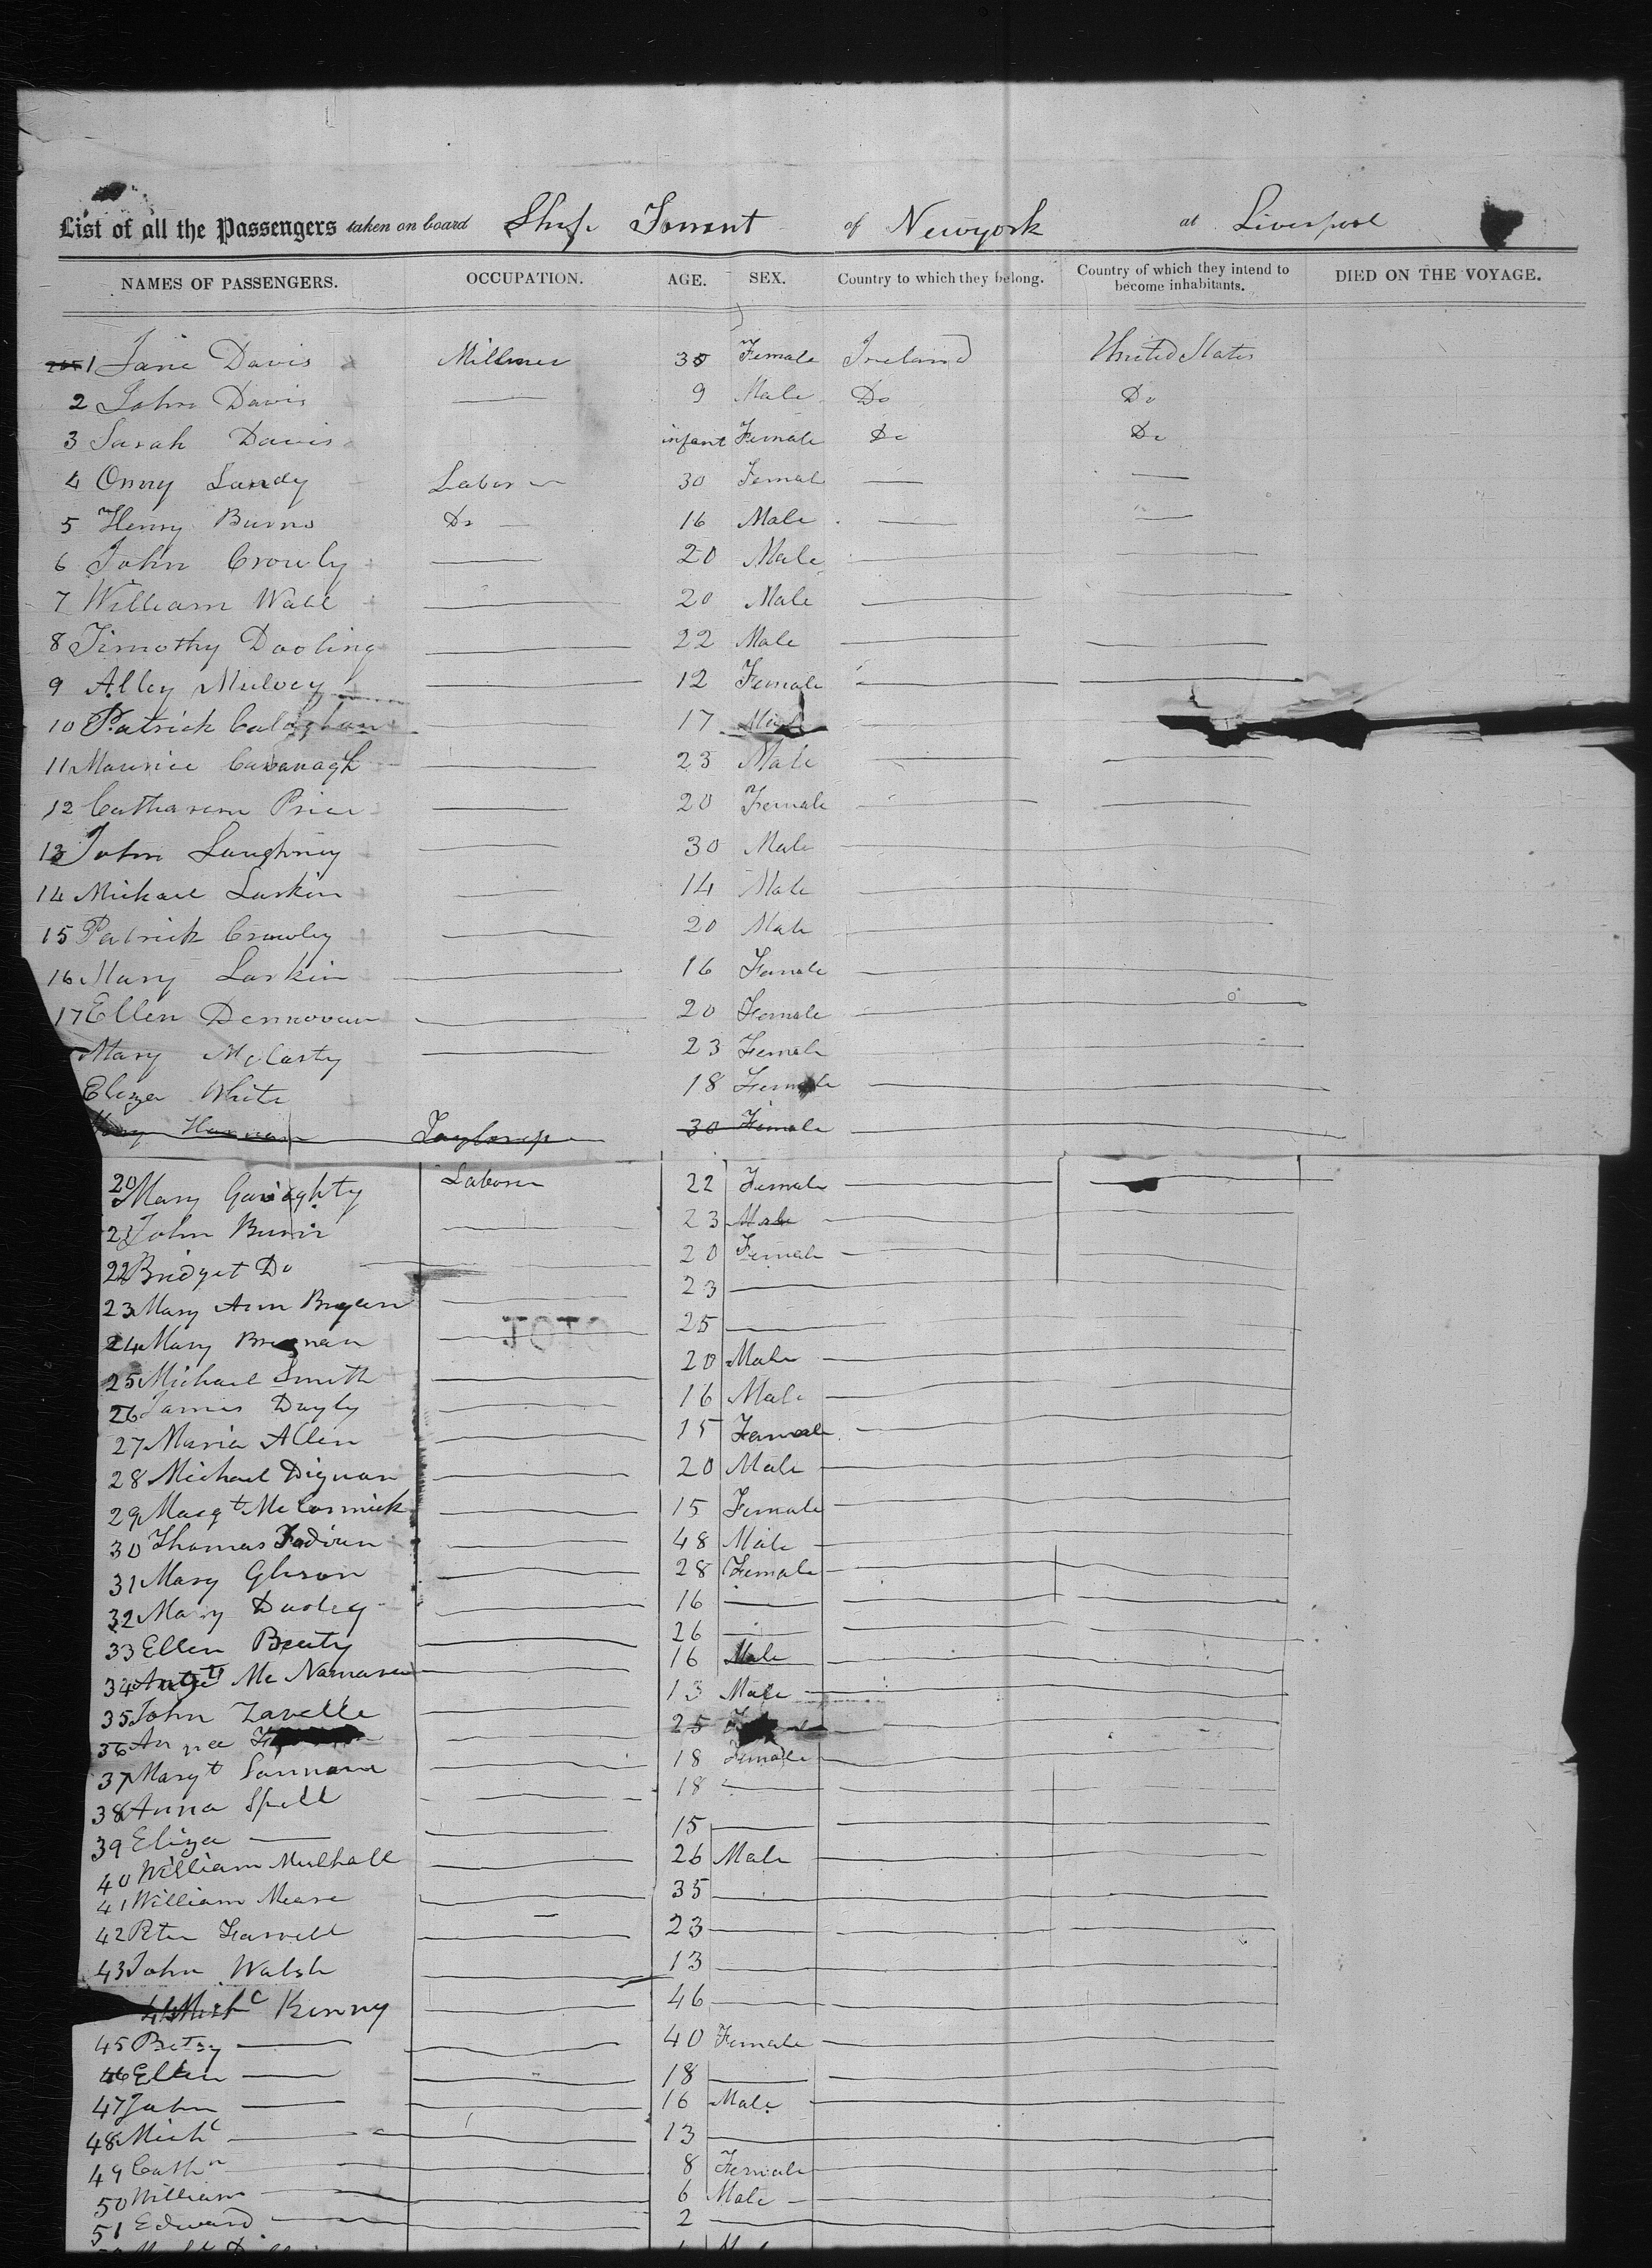 List of all the Passengers taken on board Ship Torrent of Newyork at Liverpool
NAMES OF PASSENGERS. OCCUPATION. AGE. SEX. Country to which they belong. Country of which they intend to become inhabitants. DIED ON THE VOYAGE.
1 Jane Davis Milliner 35 Female Ireland United States
2 John Davis 9 Male Do Do
3 Sarah Davis infant Female Do Do
4 Onny Landy Labor 30 Female
5 Henry Burns Do 16 Male
6 John Crowly 20 Male
7 William Wall 20 Male
8 Timothy Dooling 22 Male
9 Alley Mulvey 12 Female
10 Patrick Calaghan 17
11 Maurice Cavanagh 23 Male
12 Catharine Price 20 Female
13 John Laughney 30 Male
14 Michael Larkin 14 Male
15 Patrick Crowley 20 Male
16 Mary Larkin 16 Female
17 Ellen Dennovan 20 Female
Mary McCarty 23 Female
Eliza White 18 Female
30 Female
20 Mary Garaghty Labor 22 Female
21 John Burns 23 Male
22 Bridget Do 20 Female
23 Mary Ann Bryan 23
24 Mary 25
25 Michael Smith 20 Male
26 James Dayly 16 Male
27 Maria Allen 15 Female
28 Michael Dignan 20 Male
29 Margt McCormick 15 Female
30 Thomas 48 Male
31 Mary Gleson 28 Female
32 Mary 16
33 Ellen Beaty 26
34 Mc Namara 16 Male
35 John Lavelle 13 Male
36 25
37 Margt Lannane 18 Female
38 Anna Spell 18
39 Eliza 15
40 William Mulhall 26 Male
41 William Meare 35
42 Peter Farrell 23
43 John Walsh 13
44 Michl Kenny 46
45 Betsy 40 Female
46 Ellen 18
47 John 16 Male
48 Michl 13
49 Cathn 8 Female
50 William 6 Male
51 Edward 2